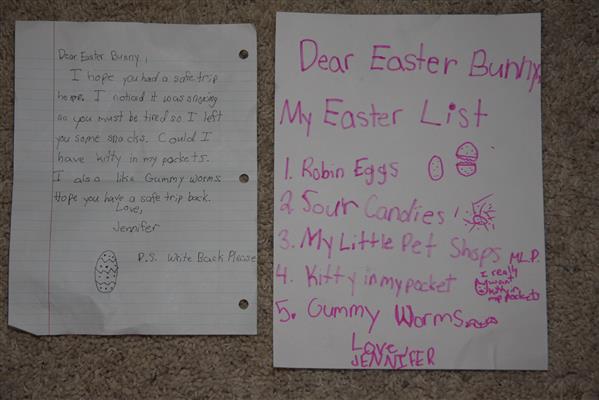 Dear Easter Bunny,
I hope you had a safe trip
home. I noticed it was snowing
so you must be tired so I left
you some snacks. Could I
have kitty in my pockets.
I also like Gummy worms
Hope you have a safe trip back.
Love,
Jennifer
P.S. Write Back Please
Dear Easter Bunny,
My Easter List
1. Robin Eggs
2. Sour Candies
3. My Little Pet Shops M.L.P.
4. Kitty in my pocket
I really
want
kitty in
my pockets
5. Gummy Worms
Love,
JENNIFER